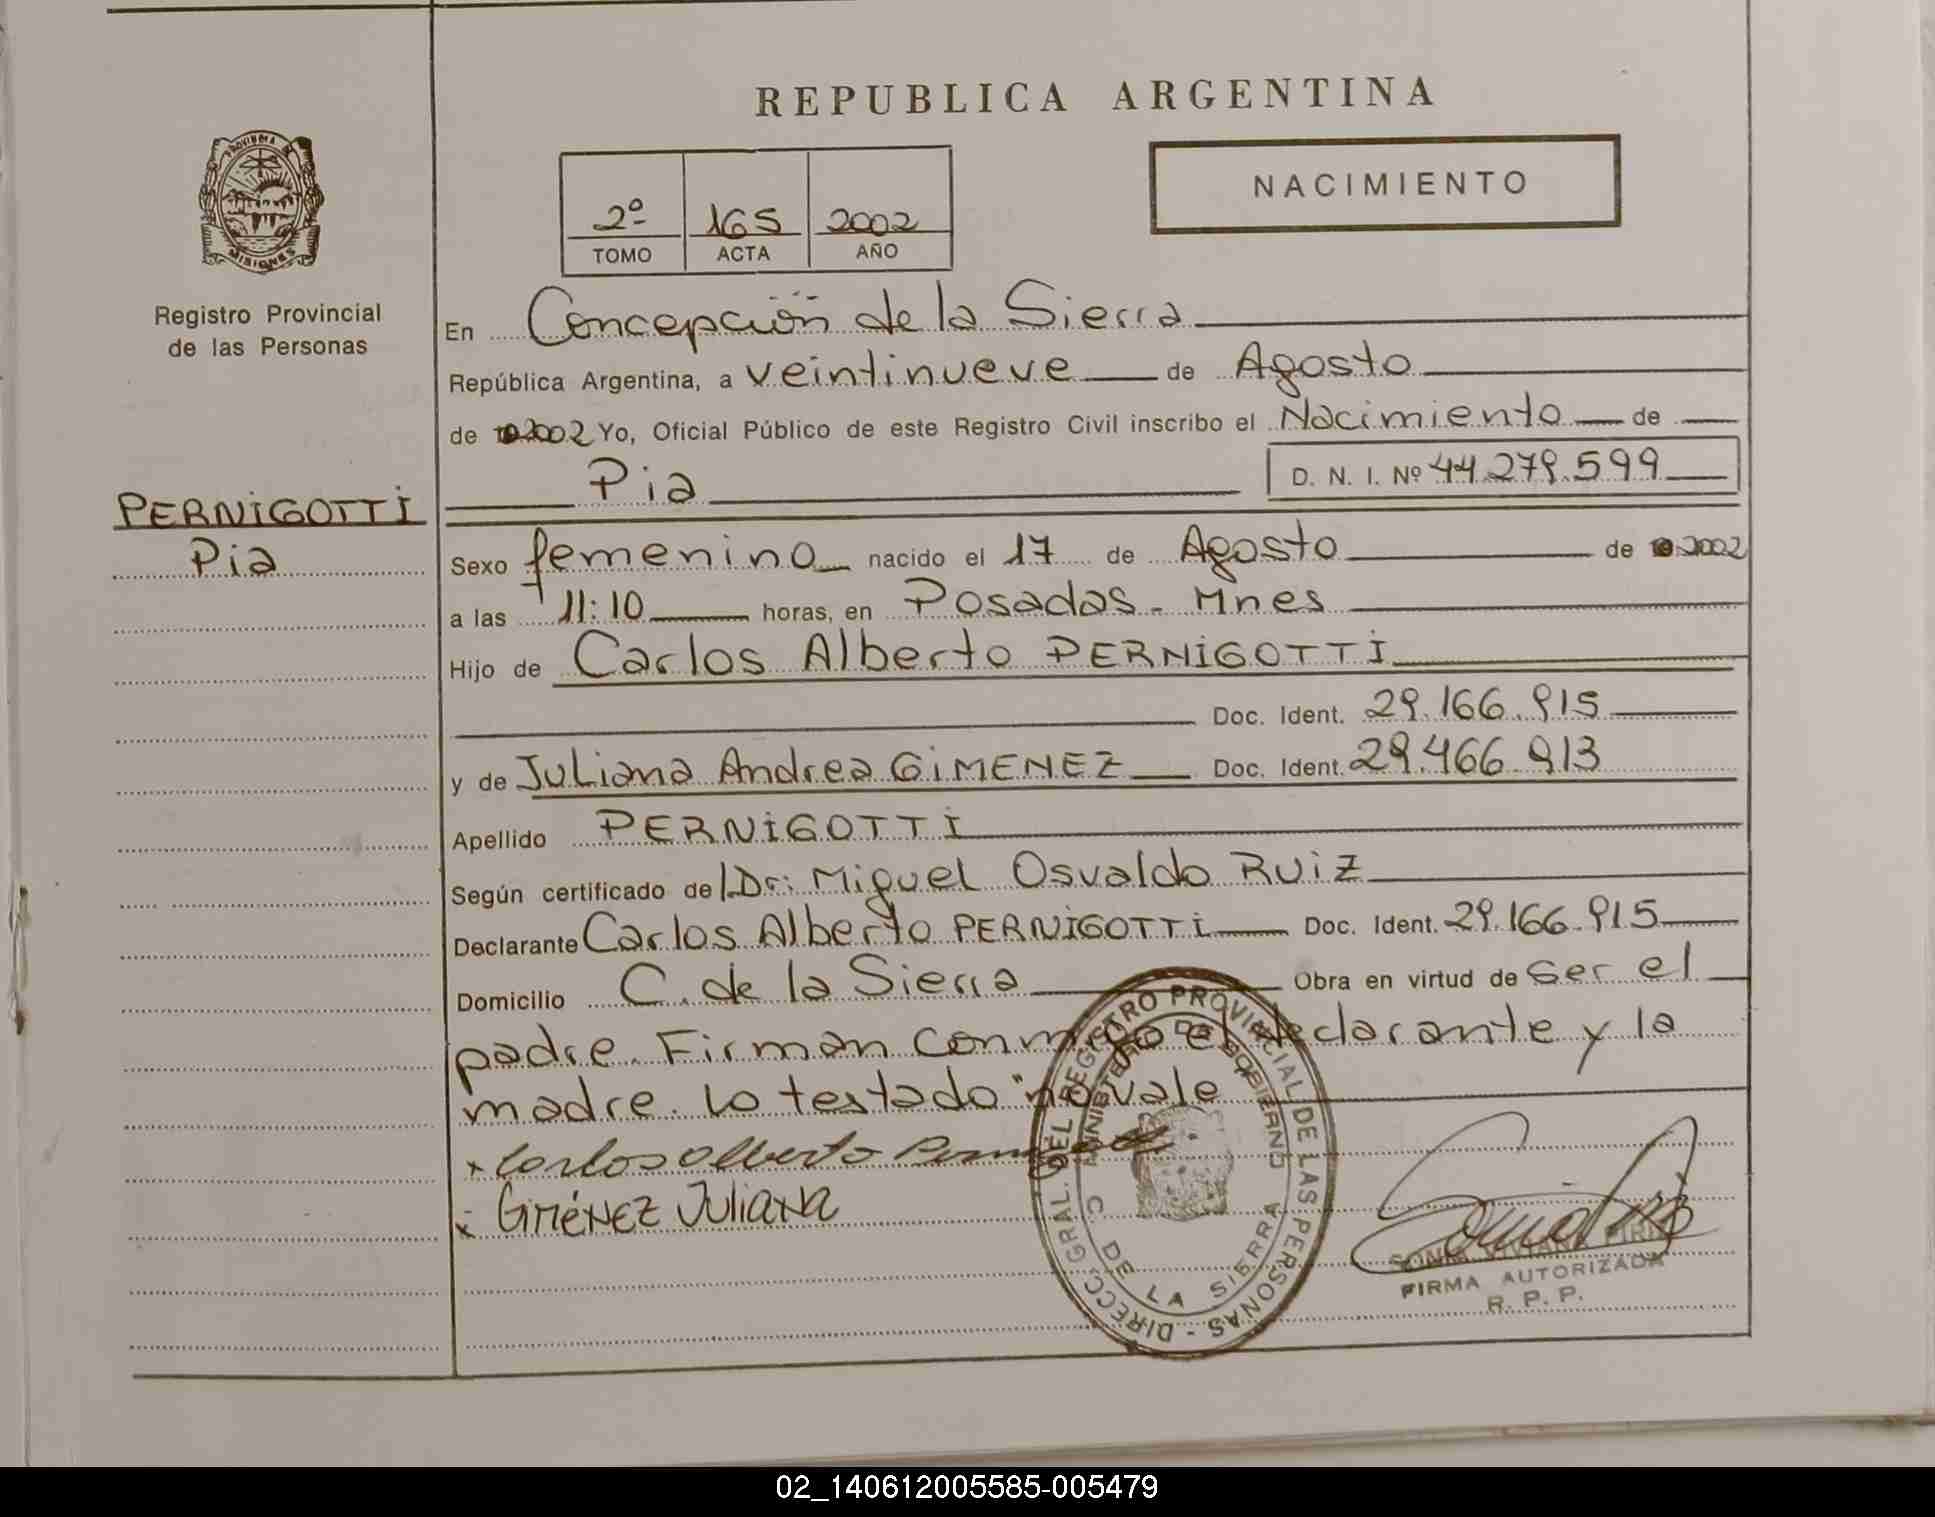 REPUBLICA ARGENTINA
NACIMIENTO
2º 165 2002
TOMO ACTA AÑO
PROVINCIA DE MISIONES
Registro Provincial
de las Personas
En Concepción de la Sierra
República Argentina, a veintinueve de Agosto
de 2002 Yo, Oficial Público de este Registro Civil inscribo el Nacimiento de
Pia D. N. I. Nº 44.279.599
PERNiGOTTi
Pia
Sexo femenino nacido el 17 de Agosto de 2002
a las 11:10 horas, en Posadas - Mnes
Hijo de Carlos Alberto PERNiGOTTi
Doc. Ident. 29.166.915
y de Juliana Andrea GiMENEZ Doc. Ident. 29.466.913
Apellido PERNiGOTTi
Según certificado de Dr: Miguel Osvaldo RUiZ
Declarante Carlos Alberto PERNiGOTTi Doc. Ident. 29.166.915
Domicilio C. de la Sierra Obra en virtud de ser el
padre. Firman conmigo el declarante y la
madre. Lo testado no vale
x Carlos Alberto
x GiMéNEZ JuliaNa
DIRECC. GRAL. DEL REGISTRO PROVINCIAL DE LAS PERSONAS -
MINISTERIO DE GOBIERNO
C. DE LA SIERRA
SONIA VIVIANA
FIRMA AUTORIZADA
R. P. P.
02_140612005585-005479